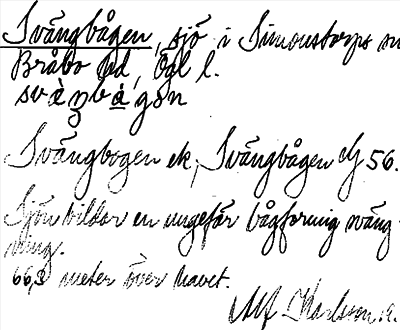 Svängbågen, sjö i Simonstorps sn
Bråbo hd, Ögl l.
svàŋbågən
Svängbogen ek, Svängbågen GS 56.
Sjön bildar en ungefär bågformig sväng-
ning.
66,3 meter över havet.
Alf Karlsson